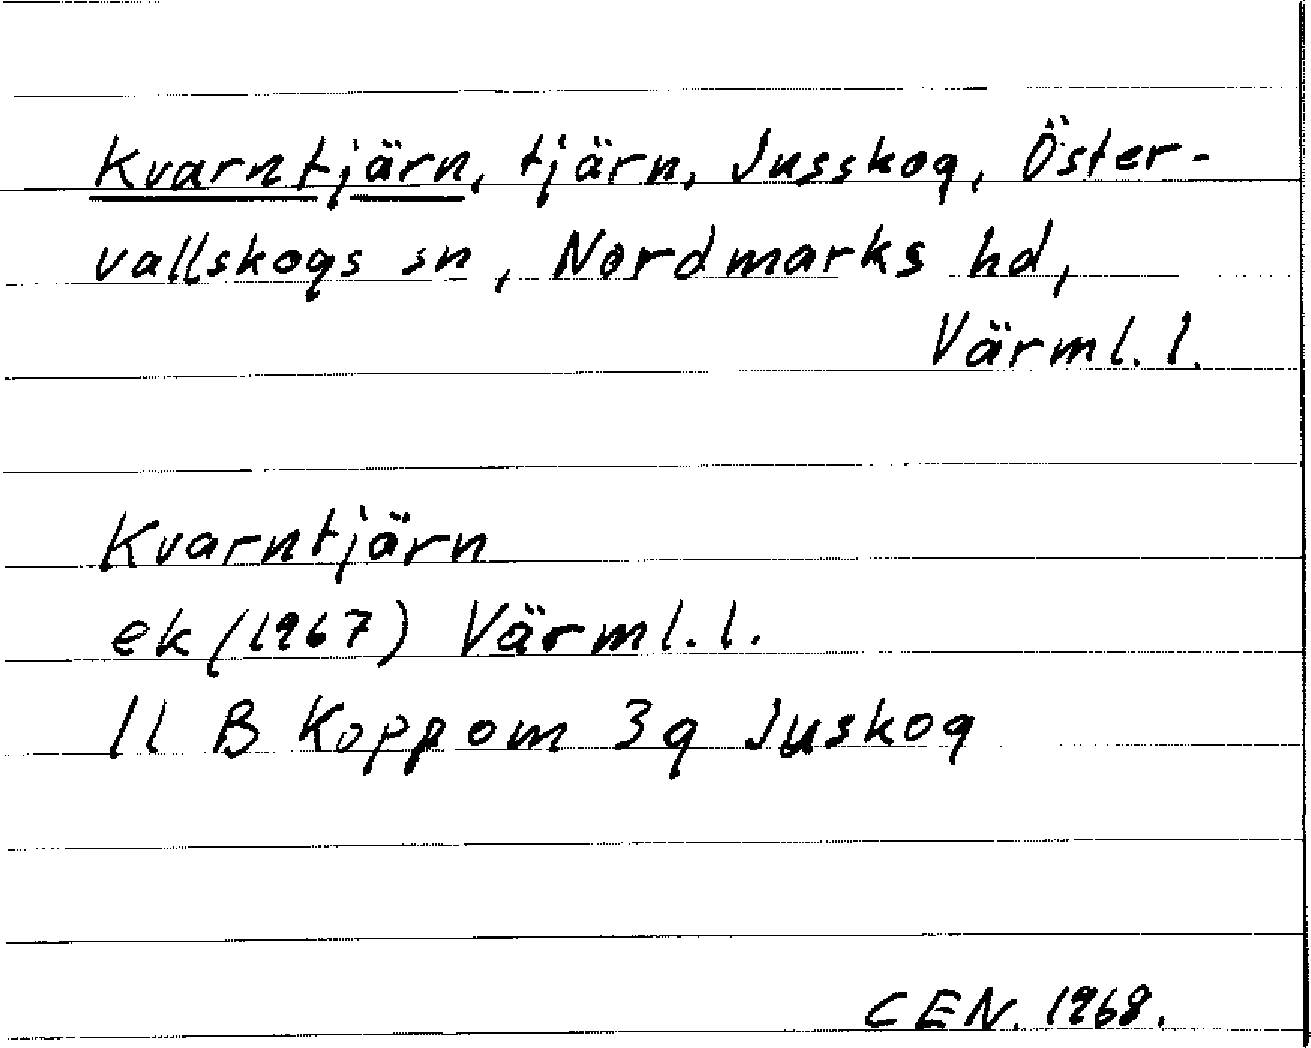 Kvarntjärn, tjärn, Jusskog, Öster-
vallskogs sn, Nordmarks hd,
Värml. l.
Kvarntjärn
ek (1967) Värml. l.
11 B Koppom 3g Juskog
CEN. 1968.